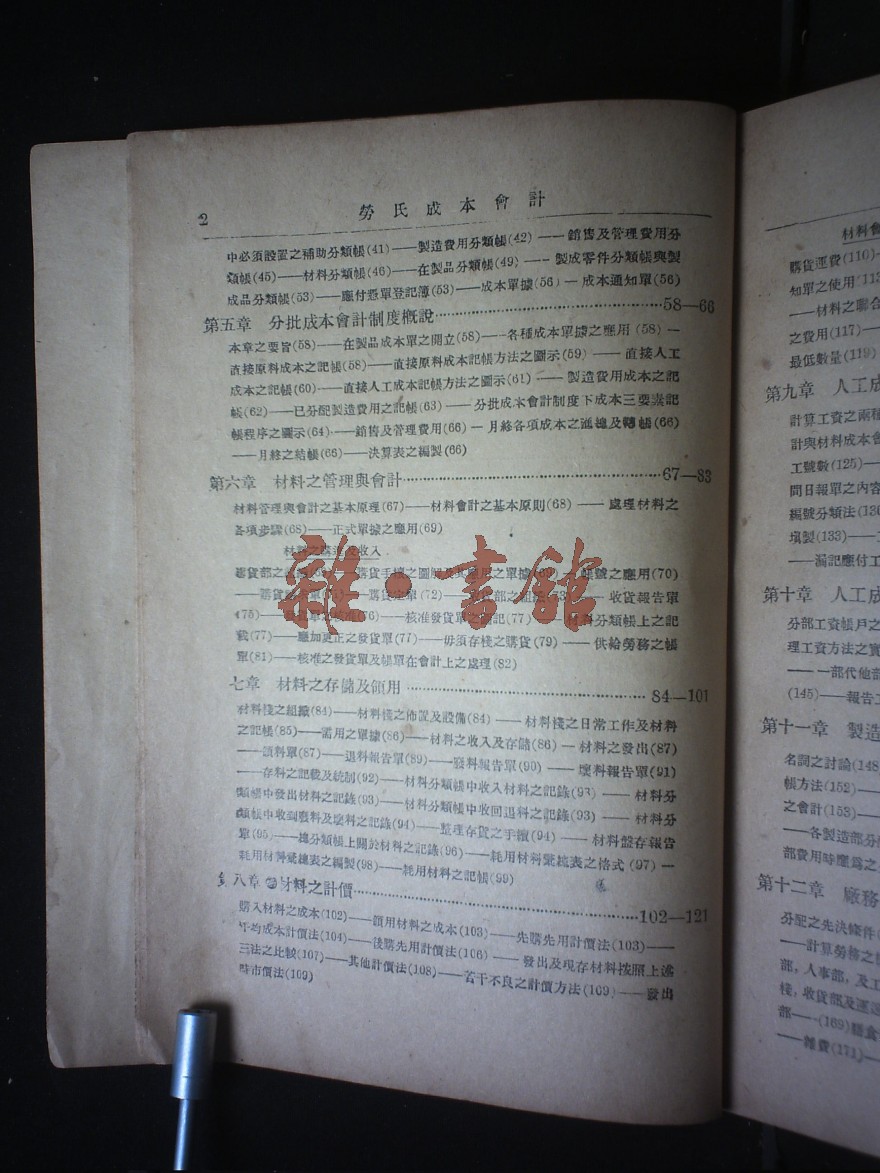 2
勞氏成本會計
中必須設置之補助分類帳(41)——製造費用分類帳(42)——銷售及管理費用分
類帳(45)——材料分類帳(46)——在製品分類帳(49)——製成零件分類帳與製
成品分類帳(53)——應付憑單登記簿(53)——成本單據(56)—成本通知單(56)
第五章 分批成本會計制度概說…………58—66
本章之要旨(58)——在製品成本單之開立(58)——各種成本單據之應用(58)—
直接原料成本之記帳(58)——直接原料成本記帳方法之圖示(59)——直接人工
成本之記帳(60)——直接人工成本記帳方法之圖示(61)——製造費用成本之記
帳(62)——已分配製造費用之記帳(63)——分批成本會計制度下成本三要素記
帳程序之圖示(64)——銷售及管理費用(66)—月終各項成本之滙總及轉帳(66)
——月終之結帳(66)——決算表之編製(66)
第六章 材料之管理與會計…………67—83
材料管理與會計之基本原理(67)——材料會計之基本原則(68)——處理材料之
各項步驟(68)——正式單據之應用(69)
材料之購進及收入
購貨部之 購貨手續之圖解及其應用之單據 帳號之應用(70)
——購貨 ——購貨定單(72) 收貨報告單
(75) (76)——核准發貨單之 記(77) 材料分類帳上之記
載(77)——應加更正之發貨單(77)——毋須存棧之購貨(79)——供給勞務之帳
單(81)——核准之發貨單及帳單在會計上之處理(82)
七章 材料之存儲及領用…………84—101
材料棧之組織(84)——材料棧之佈置及設備(84)——材料棧之日常工作及材料
之記帳(85)——需用之單據(86)——材料之收入及存儲(86)—材料之發出(87)
——領料單(87)——退料報告單(89)——廢料報告單(90)——壞料報告單(91)
——存料之記載及統制(92)——材料分類帳中收入材料之記錄(93)——材料分
類帳中發出材料之記錄(93)——材料分類帳中收回退料之記錄(93)——材料分
類帳中收到廢料及壞料之記錄(94)——整理存貨之手續(94)——材料盤存報告
單(95)——總分類帳上關於材料之記錄(96)——耗用材料彙總表之格式(97)—
耗用材料彙總表之編製(98)——耗用材料之記帳(99)
第八章 材料之計價…………102—121
購入材料之成本(102)——領用材料之成本(103)——先購先用計價法(103)——
平均成本計價法(104)——後購先用計價法(106)——發出及現存材料按照上述
三法之比較(107)——其他計價法(108)——若干不良之計價方法(109)——發出
時市價法(109)
雜·書館
材料會
購貨運費(110)
知單之使用(113
——材料之聯合
之費用(117)——
最低數量(119)
第九章 人工成
計算工資之兩種
計與材料成本會
工號數(125)——
間日報單之內容
編號分類法(130
填製(133)——
——漏記應付工
第十章 人工成
分部工資帳戶之
理工資方法之實
——一部代他部
(145)——報告工
第十一章 製造
名詞之討論(148
帳方法(152)——
之會計(153)——
——各製造部分
部費用時應爲之
第十二章 廠務
分配之先決條件(
——計算勞務之
部，人事部，及工
棧，收貨部及運送
部——(169)膳食
——雜費(171)——